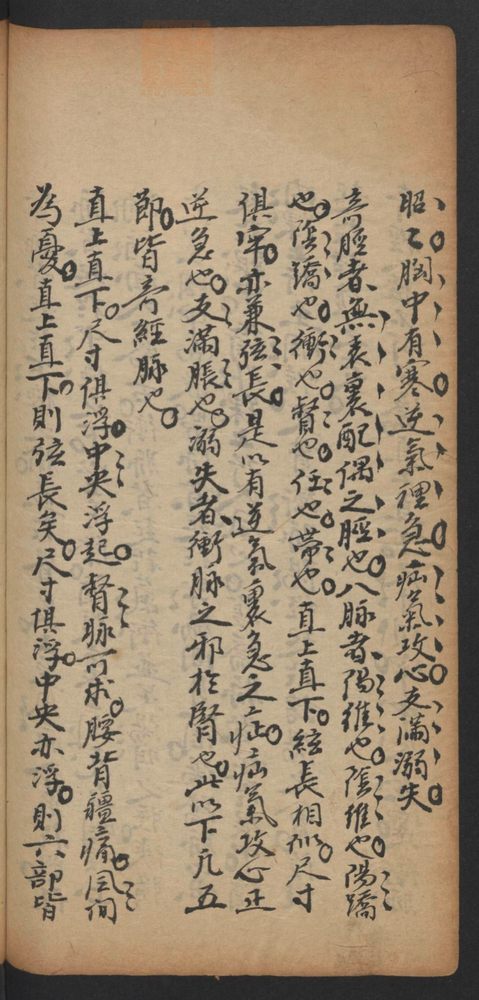 昭〻胸中有寒逆氣裡急疝氣攻心支滿溺失
奇脛者無表裏配偶之脛也八脉者陽維也陰維也陽蹻
也陰蹻也衝也督也任也帶也直上直下絃長相似尺寸
俱牢亦兼弦長是以有逆氣裏急之症疝氣攻心正
逆急也支滿脹也溺失者衝脉之邪於腎也此以下凢五
節皆竒經脉也
直上直下尺寸俱浮中央浮起督脉可求腰背疆痛風癇
為憂直上直下則弦長矣尺寸俱浮中央亦浮則六部皆